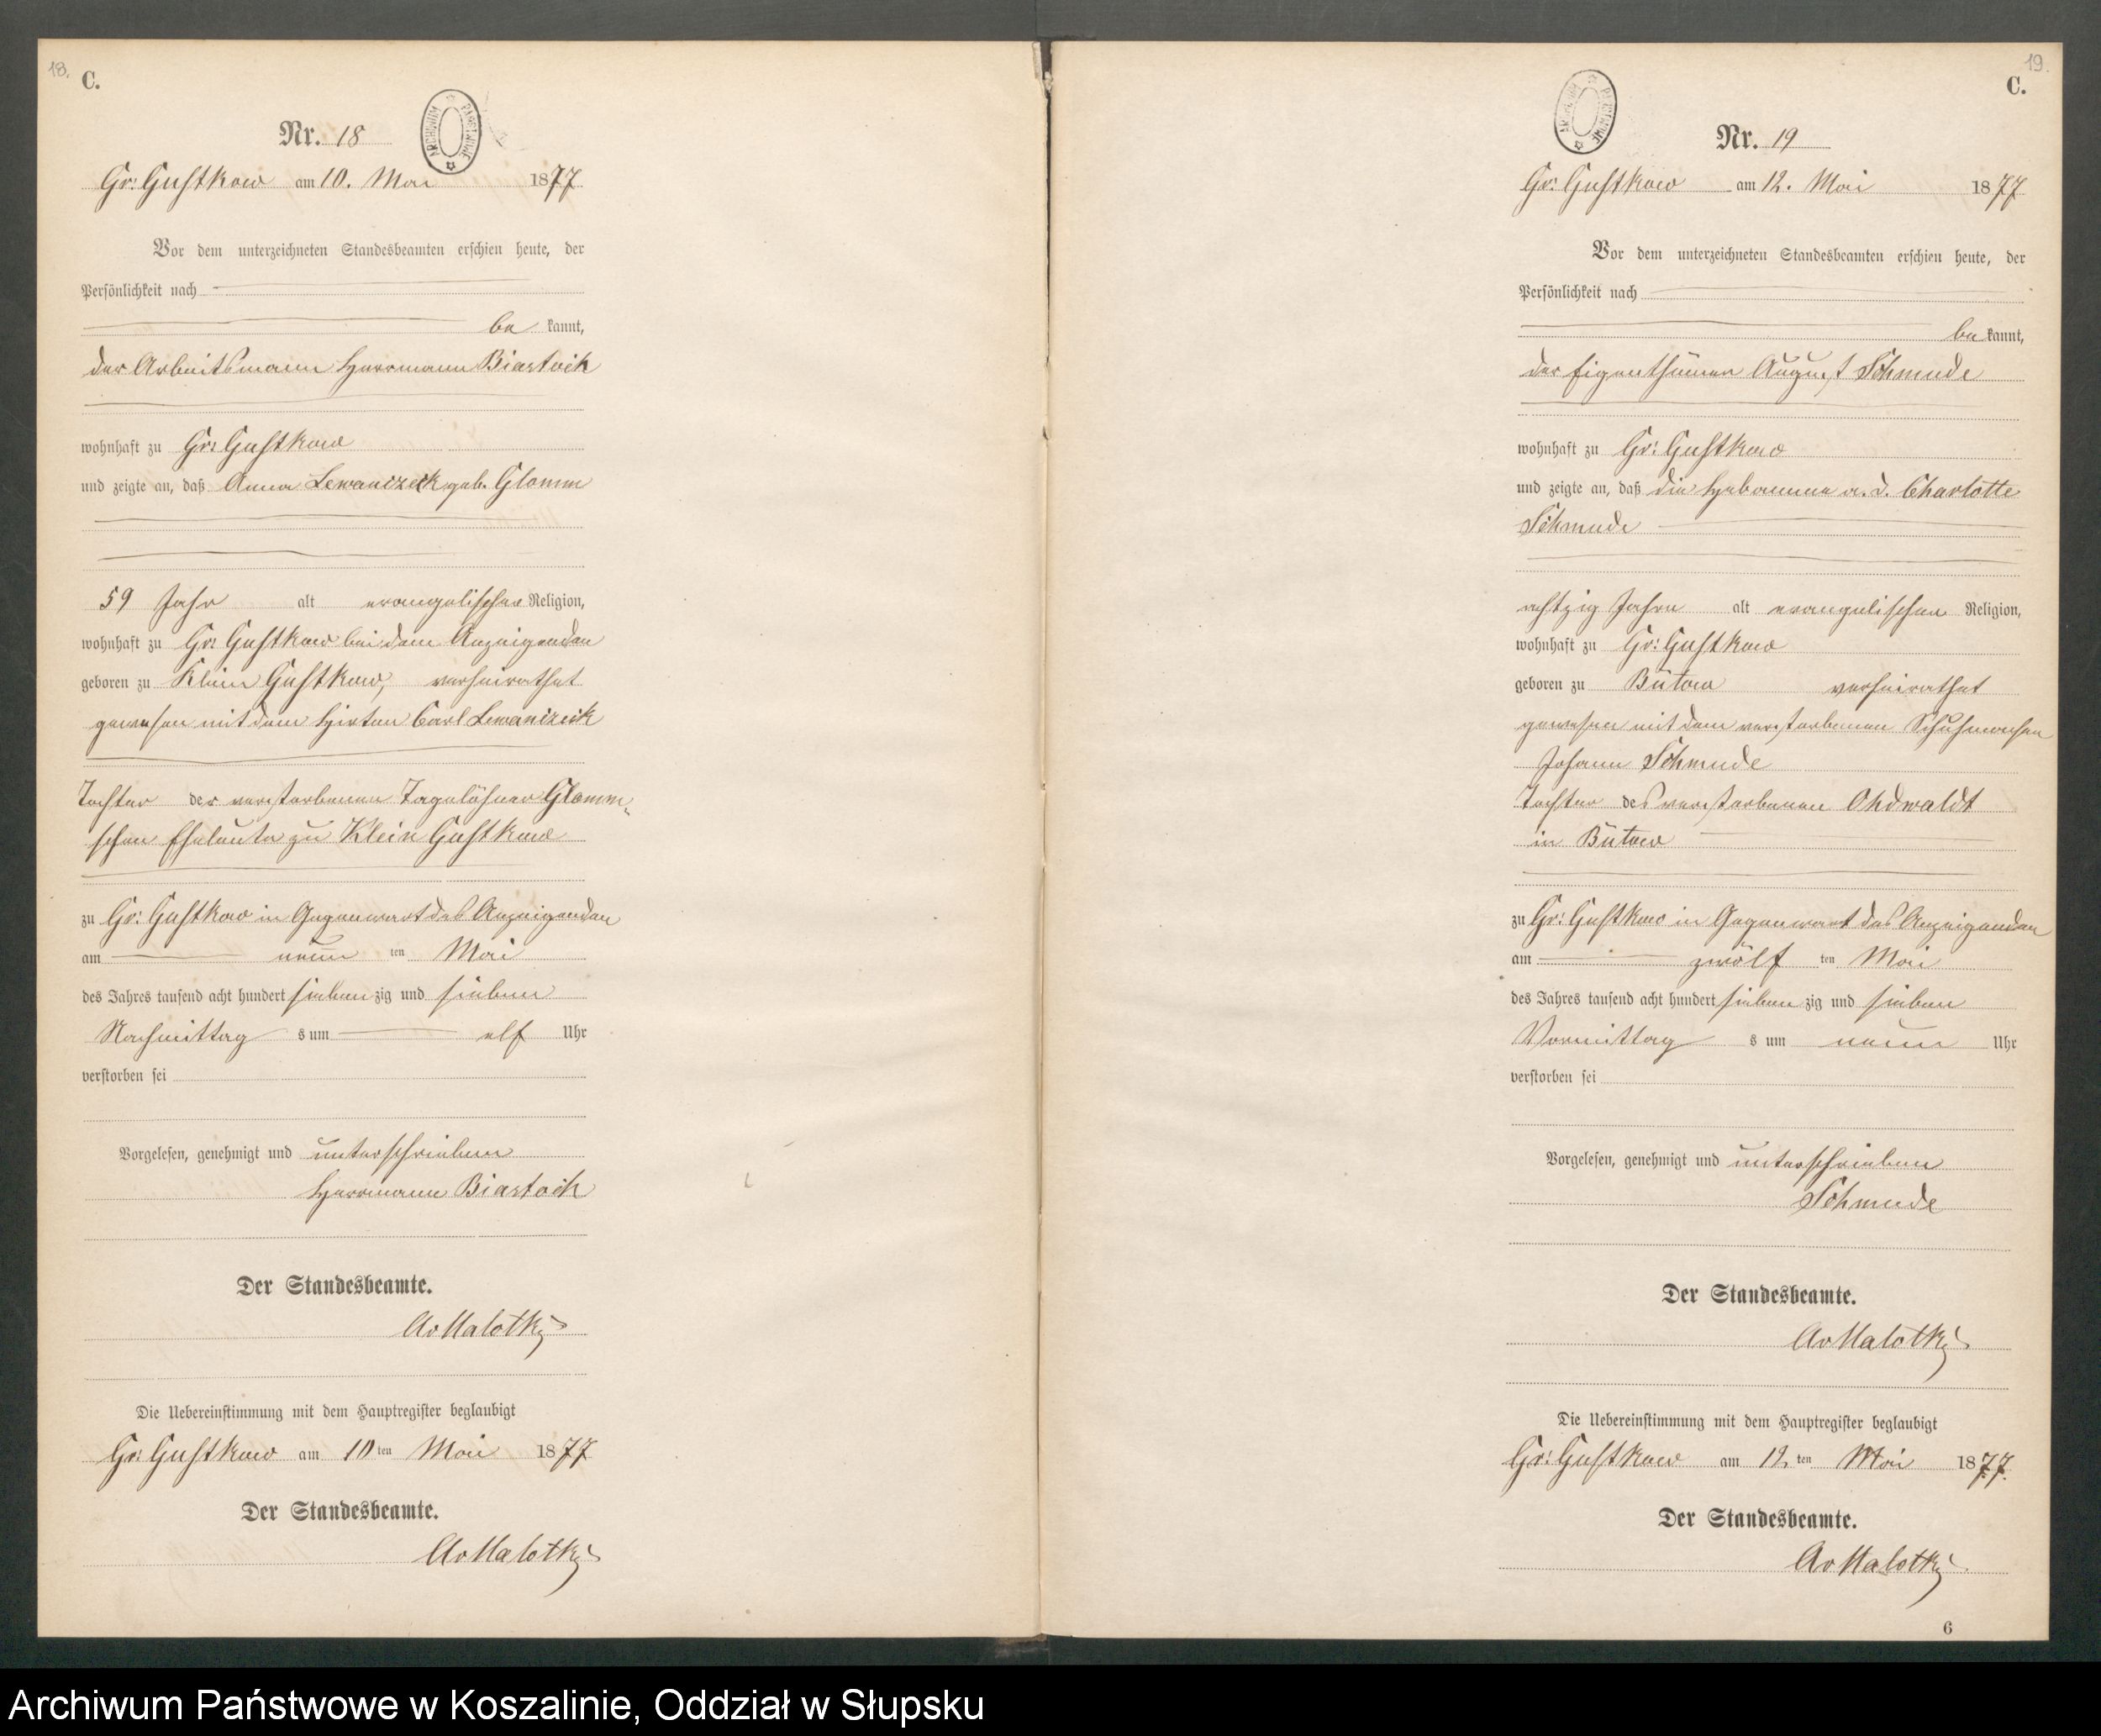 18.
C.
ARCHIWUM PAŃSTWOWE
Nr. 18
Gr: Gustkow am 10. Mai 1877
Vor dem unterzeichneten Standesbeamten erschien heute, der
Persönlichkeit nach
be kannt,
der Arbeitsmann Herrmann Biastock
wohnhaft zu Gr: Gustkow
und zeigte an, daß Anna Lewanczeck geb. Glomm
59 Jahr alt evangelischer Religion,
wohnhaft zu Gr: Gustkow bei dem Anzeigenden
geboren zu Klein Gustkow, verheirathet
gewesen mit dem Hirten Carl Lewanczeck
Tochter der verstorbenen Tagelöhner Glomm-
schen Eheleute zu Klein Gustkow
zu Gr: Gustkow in Gegenwart des Anzeigenden
am neun ten Mai
des Jahres tausend acht hundert sieben zig und sieben
Nachmittag s um elf Uhr
verstorben sei
Vorgelesen, genehmigt und unterschrieben
Herrmann Biastock
Der Standesbeamte.
AvMalottki
Die Uebereinstimmung mit dem Hauptregister beglaubigt
Gr: Gustkow am 10 ten Mai 1877
Der Standesbeamte.
AvMalottki
19.
C.
ARCHIWUM PAŃSTWOWE
Nr. 19
Gr: Gustkow am 12. Mai 1877
Vor dem unterzeichneten Standesbeamten erschien heute, der
Persönlichkeit nach
be kannt,
der Eigenthümer August Schmude
wohnhaft zu Gr: Gustkow
und zeigte an, daß die Hebamme a. D. Charlotte
Schmude
achtzig Jahre alt evangelischen Religion,
wohnhaft zu Gr: Gustkow
geboren zu Bütow verheirathet
gewesen mit dem verstorbenen Schuhmacher
Johann Schmude
Tochter des verstorbenen Ohdwaldt
in Bütow
zu Gr: Gustkow in Gegenwart des Anzeigenden
am zwölf ten Mai
des Jahres tausend acht hundert sieben zig und sieben
Vormittag s um neun Uhr
verstorben sei
Vorgelesen, genehmigt und unterschrieben
Schmude
Der Standesbeamte.
AvMalottki
Die Uebereinstimmung mit dem Hauptregister beglaubigt
Gr: Gustkow am 12. ten Mai 1877.
Der Standesbeamte.
AvMalottki
6
Archiwum Państwowe w Koszalinie, Oddział w Słupsku